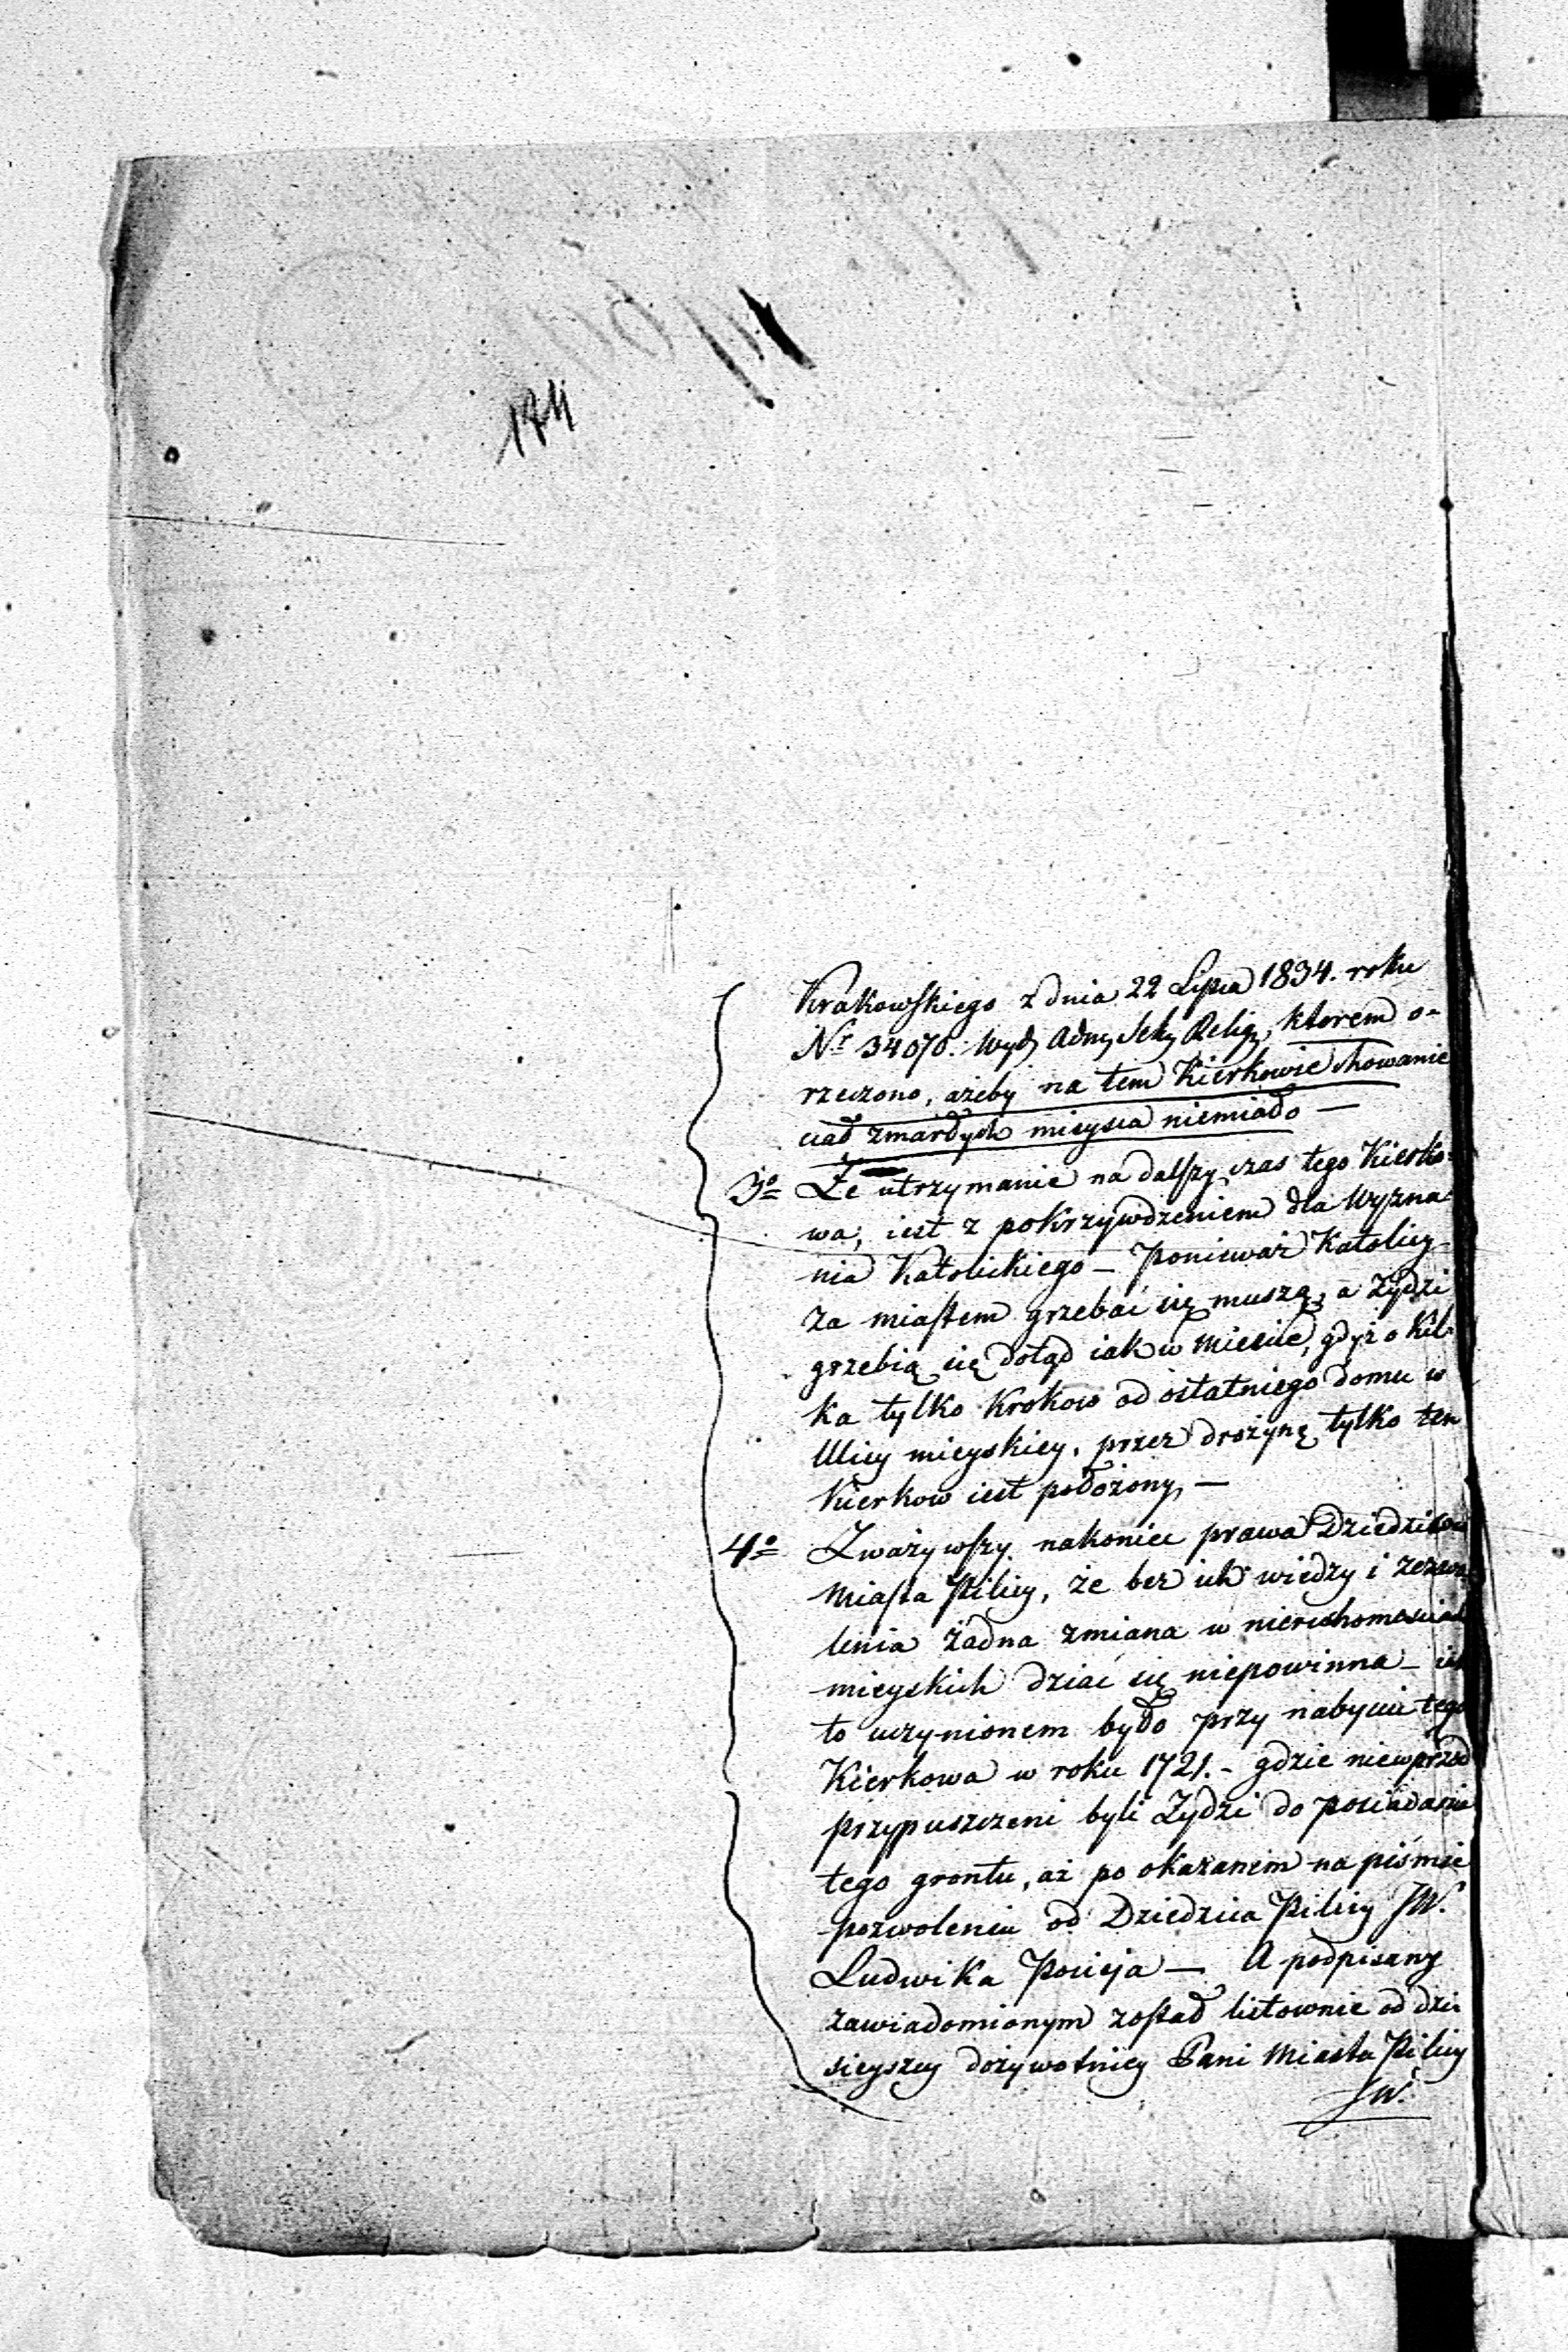 174
Krakowskiego z dnia 22 Lipca 1834. roku
Nr 34070. Wydz Admy Sekcy Religy, ktorem o-
rzeczono, ażeby na tem Kierkowie chowanie
ciał zmarłych mieysca niemiało —
3o Że utrzymanie na dalszy czas tego Kierko-
wa, iest z pokrzywdzeniem dla Wyzna-
nia Katolickiego — Ponieważ Katolicy
za miastem grzebać się muszą, a Żydzi
grzebią się dotąd iak w mieście, gdyż o kil-
ka tylko Krokow od ostatniego domu w
Ulicy mieyskiey, przez drożynę tylko ten
Kierkow iest położony, —
4o Zważywszy nakoniec prawa Dziedzicow
Miasta Pilicy, że bez ich wiedzy i zezwo-
lenia żadna zmiana w nieruchomościach
mieyskich dziać się niepowinna — iak
to uczynionem było przy nabyciu tego
Kierkowa w roku 1721. - gdzie niewprzod
przypuszczeni byli Żydzi do posiadania
tego grontu, aż po okazaniem na piśmie
pozwoleniu od Dziedzica Pilicy JW.
Ludwika Pocieja — A podpisany
zawiadomionym został listownie od dzi-
sieyszey dożywotniey Pani Miasta Pilicy
JW.